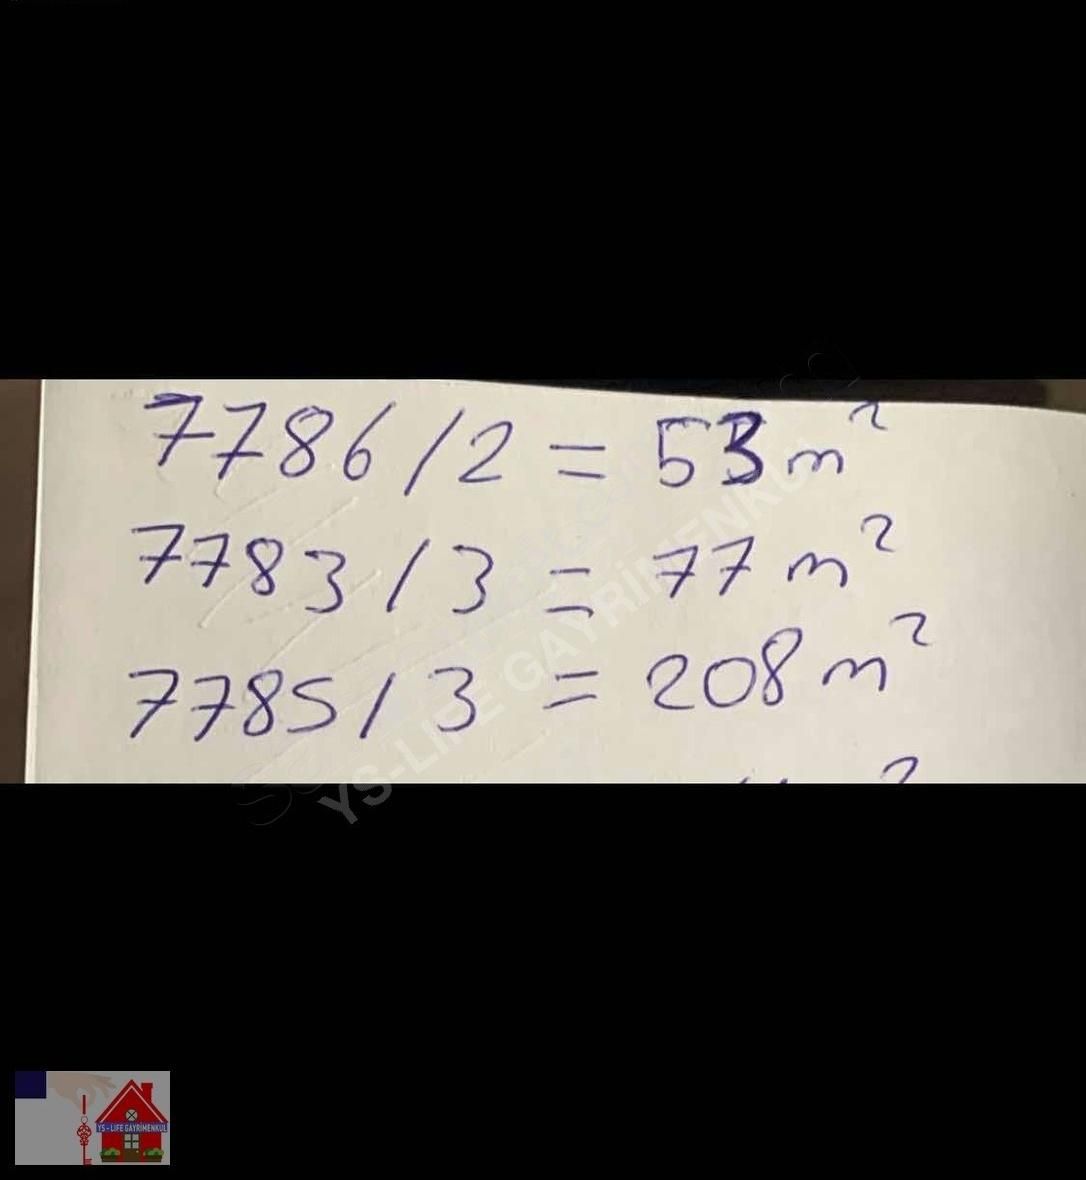 7786/2 = 53 m²
7783/3 = 77 m²
7785/3 = 208 m²
YS-LIFE GAYRİMENKUL
YS - LIFE GAYRİMENKUL